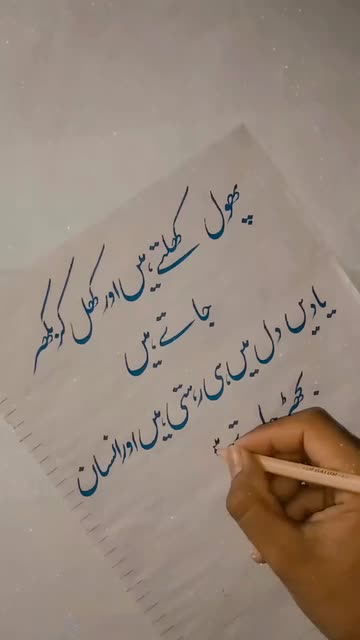 پھول کھلتے ہیں اور کھل کر بکھر
جاتے ہیں
یادیں دل میں ہی رہتی ہیں اور انسان
بچھڑ جاتے